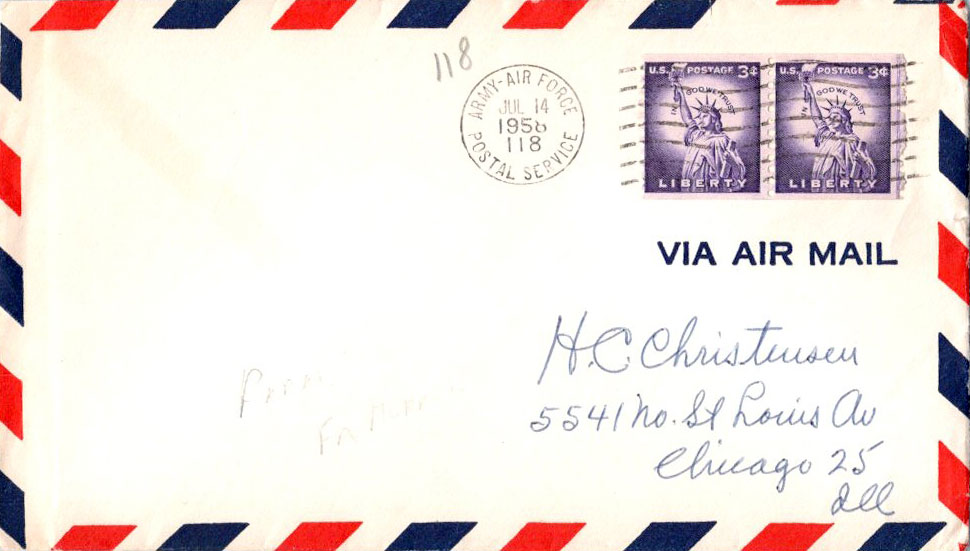 118
ARMY-AIR FORCE
JUL 14
1958
118
POSTAL SERVICE
U.S. POSTAGE 3¢
IN GOD WE TRUST
LIBERTY
U.S. POSTAGE 3¢
IN GOD WE TRUST
LIBERTY
VIA AIR MAIL
H.C. Christensen
5541 No. St Louis Av
Chicago 25
Ill